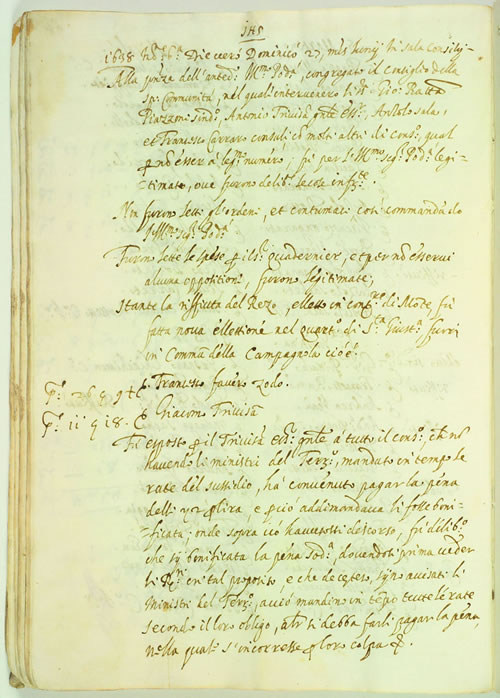 IHS
1638 Ind. Die verò Dominicò 27, mēs Junij In sala Consilij
Alla pñza dell'anted: Mᵐᵒ Podᵃ, congregato il consiglio della
Spᵗ Communità, nel qual intervenero li
Piazzoni sind:, Antonio Trivisã, Antolo sala,
et Francesco Carraro consoli cõ molti altri di cons:, qual
nõ esser à legm̃ numero, fù per l'Illᵐᵒ Sigʳ Podᵃ legi-
-timato, ove furono delibᵗ le cose infᵗᵉ.
Nõ furono letti gl'ordeni, et contumaci così commandãdo
l'Illᵐᵒ Sigʳ Podᵃ
Furono lette le spese quadernier, et per nõ esservi
alcuna oppositioni, furono legitimate;
Stante la riffiuta del Rezo, elletto in di Mote, fù
fatta nova ellettione nel quartʳ di Sᵗᵃ Giustᵃ, furri
in Commũ della Campagnola cioè:
Francesco favero zoto.
pᵉ 8 9
Giacomo Trivisã
pᵉ 11 9 18
Fù esposto il Trivisã à tutto il cons:, che nõ
havendo li ministri del Terrʳ, mandato in tempo le
rate del sussidio, hà convenuto pagar la pena
delli lira, e ciò addimandava li fosse boni-
-ficata; onde sopra ciò havutosti descorso, fù delibᵗ
che sij bonificata la pena sodᵃ, dovendosi prima veder
li in tal proposito e che de cetero, sijno avisati li
Ministri del Terrʳ, acciò mandino in tẽpo tutte le rate
secondo il loro obligo, altʳ si debba farli pagar la pena,
nella qual s'incorresse loro colpa